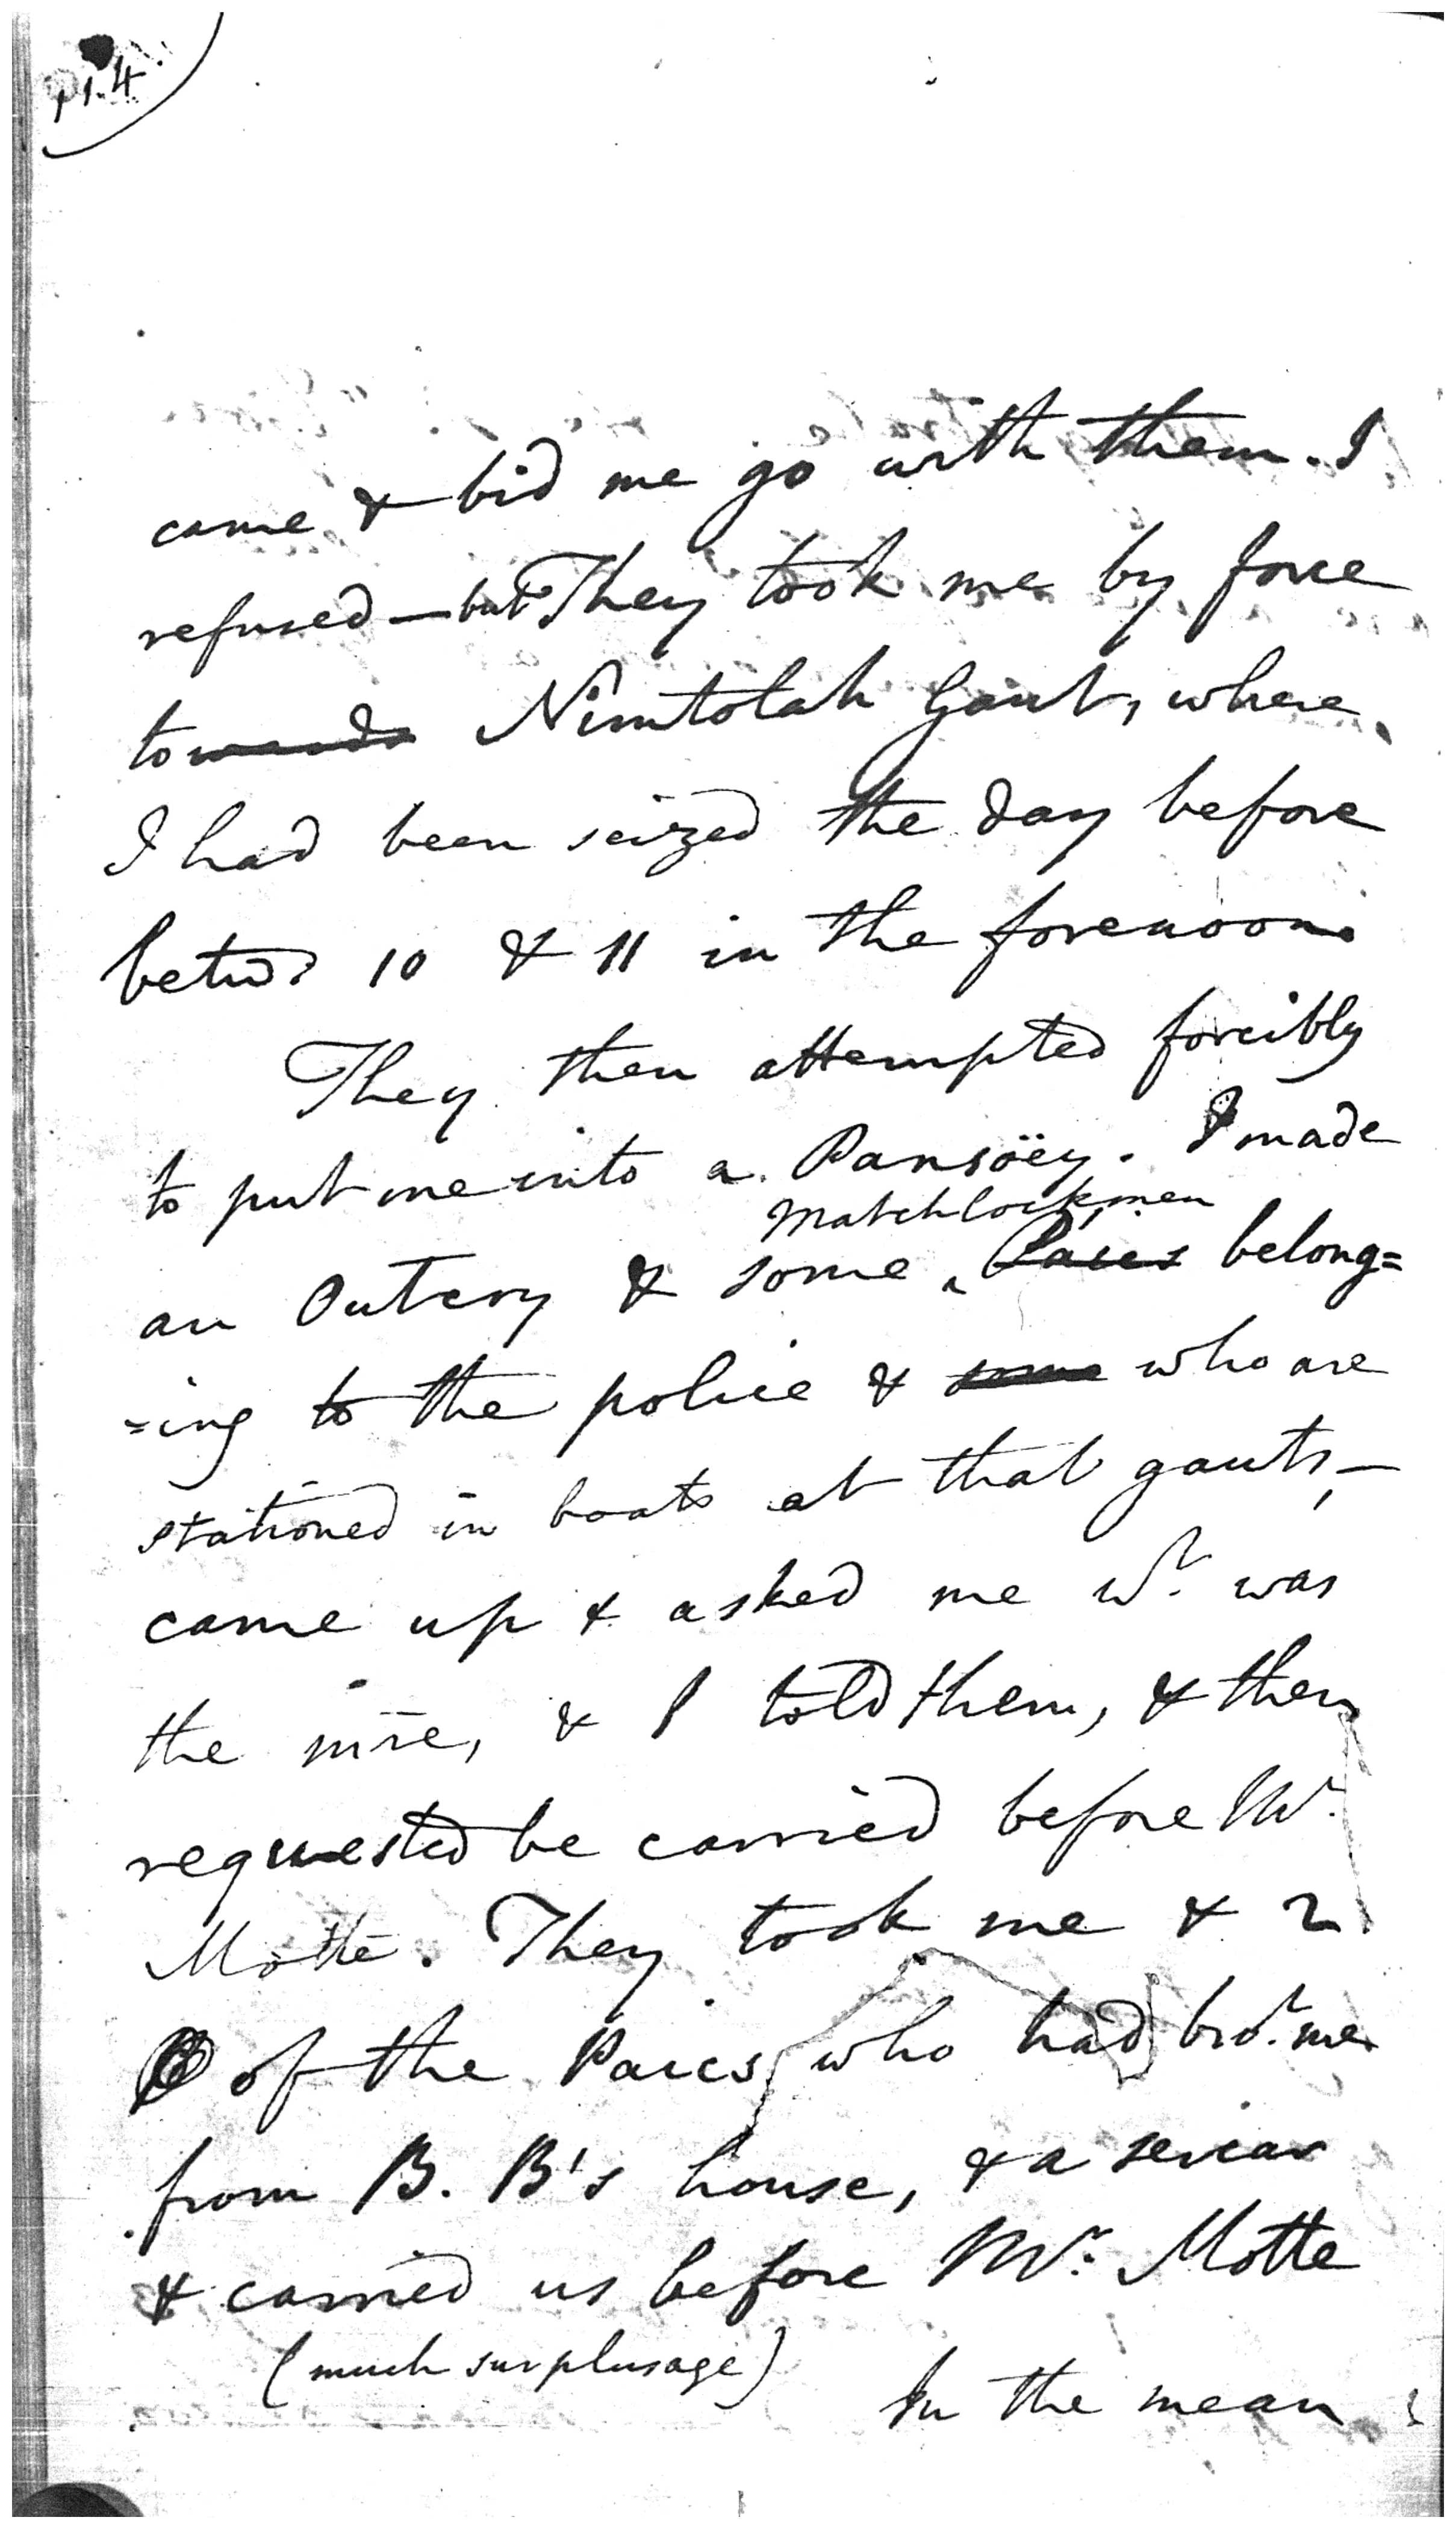 p. 4
came & bid me go with them. I
refused — but They took me by force
towards Nimtolah Gaut, where
I had been seized the day before
betwn. 10 & 11 in the forenoon.
They then attempted forcibly
to put me into a Pansöey. I made
matchlockmen
an Outcry & some ^ Paics belong=
=ing to the police & some who are
stationed in boats at that gaut, —
came up & asked me wt. was
the mre, & I told them, & then
requested be carried before Mr.
Motte. They took me & 2
of the Paics who had brot. me
from B. B's house, & a sircar
& carried us before Mr. Motte
(much surplusage)
In the mean